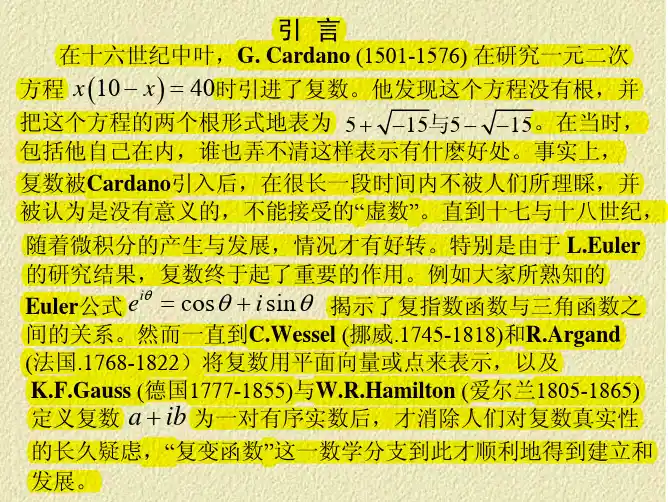 引 言
在十六世纪中叶，G. Cardano (1501-1576) 在研究一元二次
方程 x(10 − x) = 40时引进了复数。他发现这个方程没有根，并
把这个方程的两个根形式地表为 5+√−15与5−√−15。在当时，
包括他自己在内，谁也弄不清这样表示有什麽好处。事实上，
复数被Cardano引入后，在很长一段时间内不被人们所理睬，并
被认为是没有意义的，不能接受的“虚数”。直到十七与十八世纪，
随着微积分的产生与发展，情况才有好转。特别是由于 L.Euler
的研究结果，复数终于起了重要的作用。例如大家所熟知的
Euler公式 e^{iθ} = cosθ + i sinθ 揭示了复指数函数与三角函数之
间的关系。然而一直到C.Wessel (挪威.1745-1818)和R.Argand
(法国.1768-1822）将复数用平面向量或点来表示，以及
K.F.Gauss (德国1777-1855)与W.R.Hamilton (爱尔兰1805-1865)
定义复数 a + ib 为一对有序实数后，才消除人们对复数真实性
的长久疑虑，“复变函数”这一数学分支到此才顺利地得到建立和
发展。